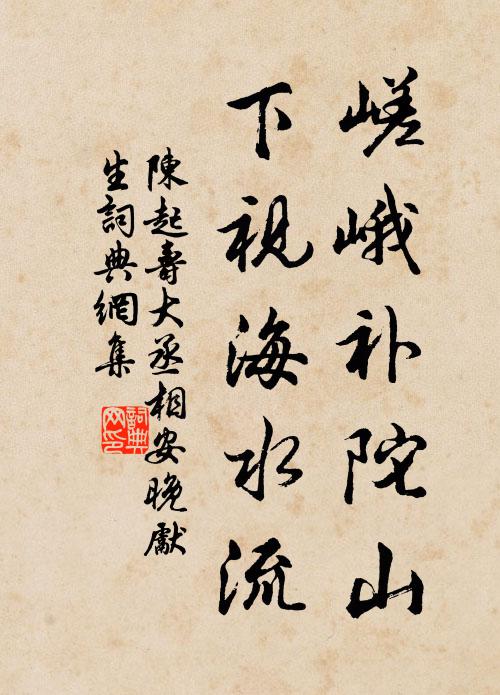 嵯峨补陀山
下視海水流
陳起壽大丞相安晚獻
生詞典網集
詞典
网印